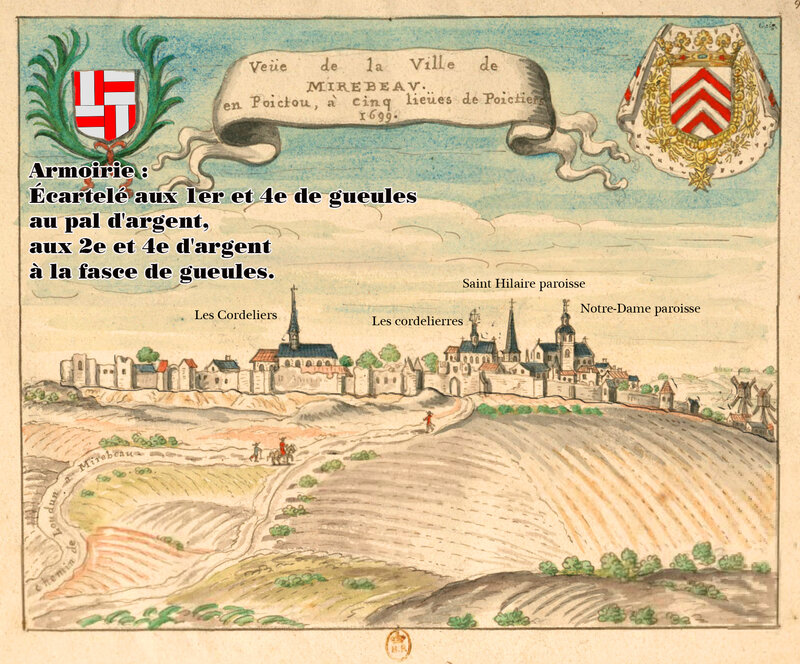 Veüe de la Ville de
MIREBEAV.
en Poictou, à cinq lieües de Poictiers
1699.
Armoirie :
Écartelé aux 1er et 4e de gueules
au pal d'argent,
aux 2e et 4e d'argent
à la fasce de gueules.
Saint Hilaire paroisse
Les Cordeliers
Les cordelierres
Notre-Dame paroisse
Chemin de Loudun a Mirebeau